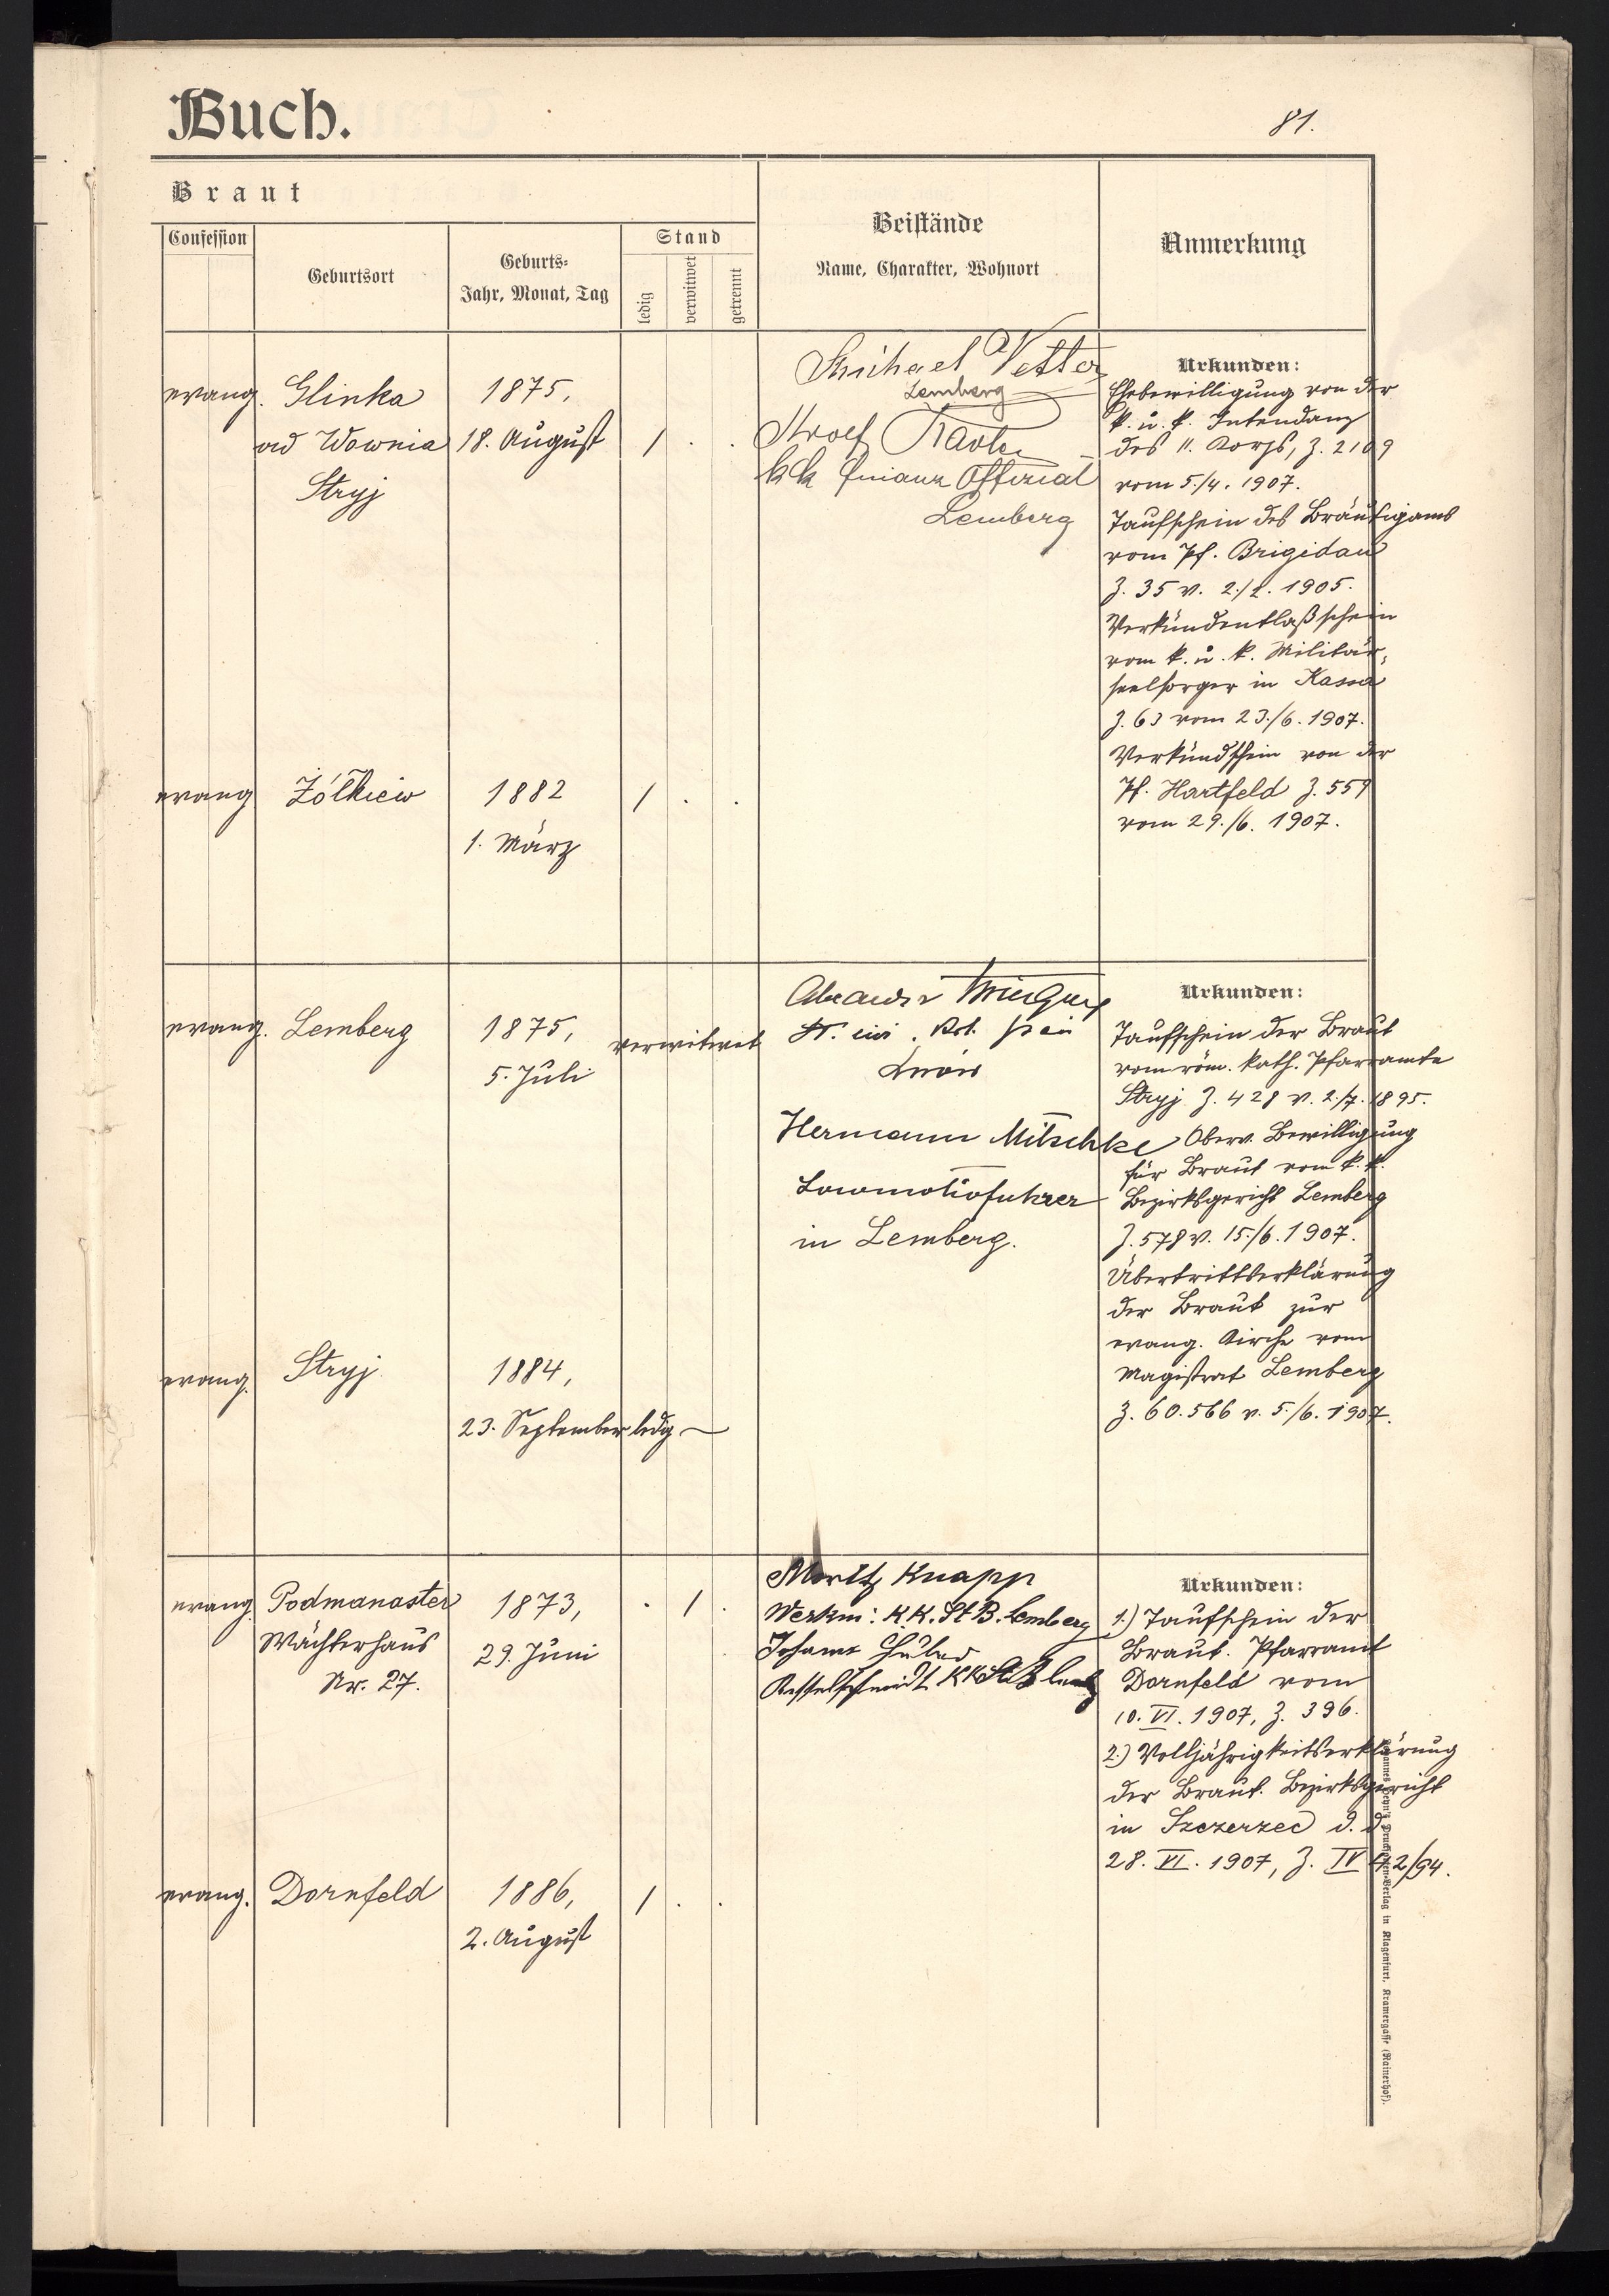 Buch.
81.
Braut
Confession
Geburtsort
Geburts-
Jahr, Monat, Tag
Stand
ledig
verwitwet
getrennt
Beistände
Name, Charakter, Wohnort
Anmerkung
evang. Glinka 1875,
ad Wownia 18. August / . .
Stryj
Michael Vetter
Lemberg
Adolf
kk Finanz Official
Lemberg
Urkunden:
Ehebewilligung von der
k. u. k. Intendanz
des 11. Korps, Z. 2109
vom 5./4. 1907.
Taufschein des Bräutigams
vom Pf. Brigidau
Z. 35 v. 2./2. 1905.
Verkündentlaßschein
vom k. u. k. Militär-
seelsorger in Kassa
Z. 63 vom 23./6. 1907.
Verkündschein von der
Pf. Hartfeld Z. 559
vom 29./6. 1907.
evang Żółkiew 1882 / . .
1. März
evang. Lemberg 1875, verwitwet
5. Juli
Lwów
Hermann Mitschke
Locomotivfuhrer
in Lemberg.
Urkunden:
Taufschein der Braut
vom röm. kath. Pfarramte
Stryj Z. 428 v. 2./7. 1895.
Oberv. Bewilligung
für Braut vom k. k.
Bezirksgericht Lemberg
Z. 578 v. 15./6. 1907.
Übertrittserklärung
der Braut zur
evang. Kirche vom
Magistrat Lemberg
Z. 60.566 v. 5./6. 1907.
evang. Stryj 1884,
23. September ledig —
evang. Podmanaster 1873, . / .
Wächterhaus 29. Juni
Nr. 27.
Moritz Knapp
Werkm: K.K. St B. Lemberg
Johann
Kesselschmidt KK St B
Urkunden:
1.) Taufschein der
Braut. Pfarramt
Dornfeld vom
10. VI. 1907, Z. 396.
2.) Volljährigkeitserklärung
der Braut. Bezirksgericht
in Szczerzec d. d.
28. VI. 1907, Z. IV 42/94.
evang. Dornfeld 1886, / . .
2. August
Johannes Heyn's Drucksorten-Verlag in Klagenfurt, Kramergasse (Rainerhof).